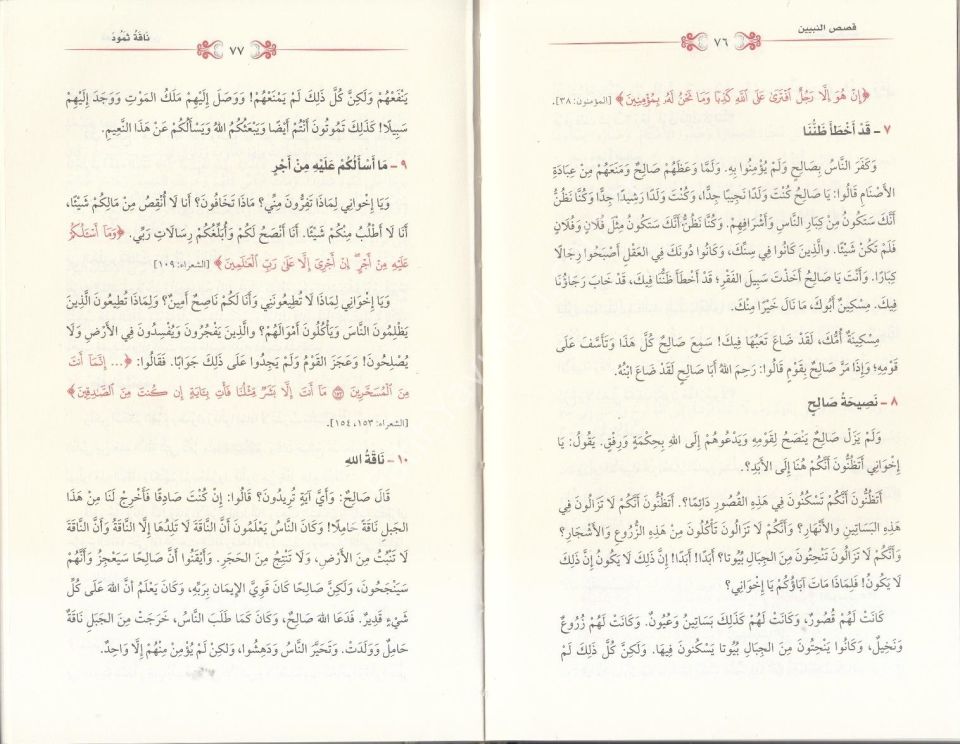 قصص النبيين
٧٦
﴿إِنْ هُوَ إِلَّا رَجُلٌ ٱفْتَرَىٰ عَلَى ٱللَّهِ كَذِبًا وَمَا نَحْنُ لَهُۥ بِمُؤْمِنِينَ﴾ [المؤمنون: ٣٨].
٧ - قَدْ أَخْطَأَ ظَنُّنَا
وَكَفَرَ النَّاسُ بِصَالِحٍ وَلَمْ يُؤْمِنُوا بِهِ. وَلَمَّا وَعَظَهُمْ صَالِحٌ وَمَنَعَهُمْ مِنْ عِبَادَةِ
الأَصْنَامِ قَالُوا: يَا صَالِحُ كُنْتَ وَلَدًا نَجِيبًا جِدًّا، وَكُنْتَ وَلَدًا رَشِيدًا جِدًّا وَكُنَّا نَظُنُّ
أَنَّكَ سَتَكُونُ مِنْ كِبَارِ النَّاسِ وَأَشْرَافِهِمْ. وَكُنَّا نَظُنُّ أَنَّكَ سَتَكُونُ مِثْلَ فُلَانٍ وَفُلَانٍ
فَلَمْ تَكُنْ شَيْئًا. وَالَّذِينَ كَانُوا فِي سِنِّكَ، وَكَانُوا دُونَكَ فِي العَقْلِ أَصْبَحُوا رِجَالًا
كِبَارًا. وَأَنْتَ يَا صَالِحُ أَخَذْتَ سَبِيلَ الفَقْرِ؛ قَدْ أَخْطَأَ ظَنُّنَا فِيكَ، قَدْ خَابَ رَجَاؤُنَا
فِيكَ. مِسْكِينٌ أَبُوكَ مَا نَالَ خَيْرًا مِنْكَ.
مِسْكِينَةٌ أُمُّكَ، لَقَدْ ضَاعَ تَعَبُهَا فِيكَ! سَمِعَ صَالِحٌ كُلَّ هَذَا وَتَأَسَّفَ عَلَى
قَوْمِهِ؛ وَإِذَا مَرَّ صَالِحٌ بِقَوْمٍ قَالُوا: رَحِمَ اللهُ أَبَا صَالِحٍ لَقَدْ ضَاعَ ابْنُهُ.
٨ - نَصِيحَةُ صَالِحٍ
وَلَمْ يَزَلْ صَالِحٌ يَنْصَحُ لِقَوْمِهِ وَيَدْعُوهُمْ إِلَى اللهِ بِحِكْمَةٍ وَرِفْقٍ. يَقُولُ: يَا
إِخْوَانِي أَتَظُنُّونَ أَنَّكُمْ هُنَا إِلَى الأَبَدِ؟.
أَتَظُنُّونَ أَنَّكُمْ تَسْكُنُونَ فِي هَذِهِ القُصُورِ دَائِمًا؟. أَتَظُنُّونَ أَنَّكُمْ لَا تَزَالُونَ فِي
هَذِهِ البَسَاتِينِ وَالأَنْهَارِ؟ وَأَنَّكُمْ لَا تَزَالُونَ تَأْكُلُونَ مِنْ هَذِهِ الزُّرُوعِ وَالأَشْجَارِ؟
وَأَنَّكُمْ لَا تَزَالُونَ تَنْحِتُونَ مِنَ الجِبَالِ بُيُوتًا؟ أَبَدًا! أَبَدًا! إِنَّ ذَلِكَ لَا يَكُونُ إِنَّ ذَلِكَ
لَا يَكُونُ! فَلِمَاذَا مَاتَ آبَاؤُكُمْ يَا إِخْوَانِي؟
كَانَتْ لَهُمْ قُصُورٌ، وَكَانَتْ لَهُمْ كَذَلِكَ بَسَاتِينُ وَعُيُونٌ. وَكَانَتْ لَهُمْ زُرُوعٌ
وَنَخِيلٌ، وَكَانُوا يَنْحِتُونَ مِنَ الجِبَالِ بُيُوتًا يَسْكُنُونَ فِيهَا. وَلَكِنَّ كُلَّ ذَلِكَ لَمْ
نَاقَةُ ثَمُودَ
٧٧
يَنْفَعْهُمْ وَلَكِنَّ كُلَّ ذَلِكَ لَمْ يَمْنَعْهُمْ! وَوَصَلَ إِلَيْهِمْ مَلَكُ المَوْتِ وَوَجَدَ إِلَيْهِمْ
سَبِيلًا! كَذَلِكَ تَمُوتُونَ أَنْتُمْ أَيْضًا وَيَبْعَثُكُمُ اللهُ وَيَسْأَلُكُمْ عَنْ هَذَا النَّعِيمِ.
٩ - مَا أَسْأَلُكُمْ عَلَيْهِ مِنْ أَجْرٍ
وَيَا إِخْوَانِي لِمَاذَا تَفِرُّونَ مِنِّي؟ مَاذَا تَخَافُونَ؟ أَنَا لَا أَنْقُصُ مِنْ مَالِكُمْ شَيْئًا،
أَنَا لَا أَطْلُبُ مِنْكُمْ شَيْئًا. أَنَا أَنْصَحُ لَكُمْ وَأُبَلِّغُكُمْ رِسَالَاتِ رَبِّي. ﴿وَمَآ أَسْـَٔلُكُمْ
عَلَيْهِ مِنْ أَجْرٍ ۖ إِنْ أَجْرِىَ إِلَّا عَلَىٰ رَبِّ ٱلْعَـٰلَمِينَ﴾ [الشعراء: ١٠٩]
وَيَا إِخْوَانِي لِمَاذَا لَا تُطِيعُونَنِي وَأَنَا لَكُمْ نَاصِحٌ أَمِينٌ؟ وَلِمَاذَا تُطِيعُونَ الَّذِينَ
يَظْلِمُونَ النَّاسَ وَيَأْكُلُونَ أَمْوَالَهُمْ؟ وَالَّذِينَ يَفْجُرُونَ وَيُفْسِدُونَ فِي الأَرْضِ وَلَا
يُصْلِحُونَ! وَعَجَزَ القَوْمُ وَلَمْ يَجِدُوا عَلَى ذَلِكَ جَوَابًا. فَقَالُوا: ﴿... إِنَّمَآ أَنتَ
مِنَ ٱلْمُسَحَّرِينَ ۝١٥٣ مَآ أَنتَ إِلَّا بَشَرٌ مِّثْلُنَا فَأْتِ بِـَٔايَةٍ إِن كُنتَ مِنَ ٱلصَّـٰدِقِينَ﴾
[الشعراء: ١٥٣، ١٥٤].
١٠ - نَاقَةُ اللهِ
قَالَ صَالِحٌ: وَأَيَّ آيَةٍ تُرِيدُونَ؟ قَالُوا: إِنْ كُنْتَ صَادِقًا فَأَخْرِجْ لَنَا مِنْ هَذَا
الجَبَلِ نَاقَةً حَامِلًا! وَكَانَ النَّاسُ يَعْلَمُونَ أَنَّ النَّاقَةَ لَا تَلِدُهَا إِلَّا النَّاقَةُ وَأَنَّ النَّاقَةَ
لَا تَنْبُتُ مِنَ الأَرْضِ، وَلَا تَنْتِجُ مِنَ الحَجَرِ. وَأَيْقَنُوا أَنَّ صَالِحًا سَيَعْجِزُ وَأَنَّهُمْ
سَيَنْجَحُونَ، وَلَكِنَّ صَالِحًا كَانَ قَوِيَّ الإِيمَانِ بِرَبِّهِ، وَكَانَ يَعْلَمُ أَنَّ اللهَ عَلَى كُلِّ
شَيْءٍ قَدِيرٌ. فَدَعَا اللهَ صَالِحٌ، وَكَانَ كَمَا طَلَبَ النَّاسُ، خَرَجَتْ مِنَ الجَبَلِ نَاقَةٌ
حَامِلٌ وَوَلَدَتْ. وَتَحَيَّرَ النَّاسُ وَدَهِشُوا، وَلَكِنْ لَمْ يُؤْمِنْ مِنْهُمْ إِلَّا وَاحِدٌ.